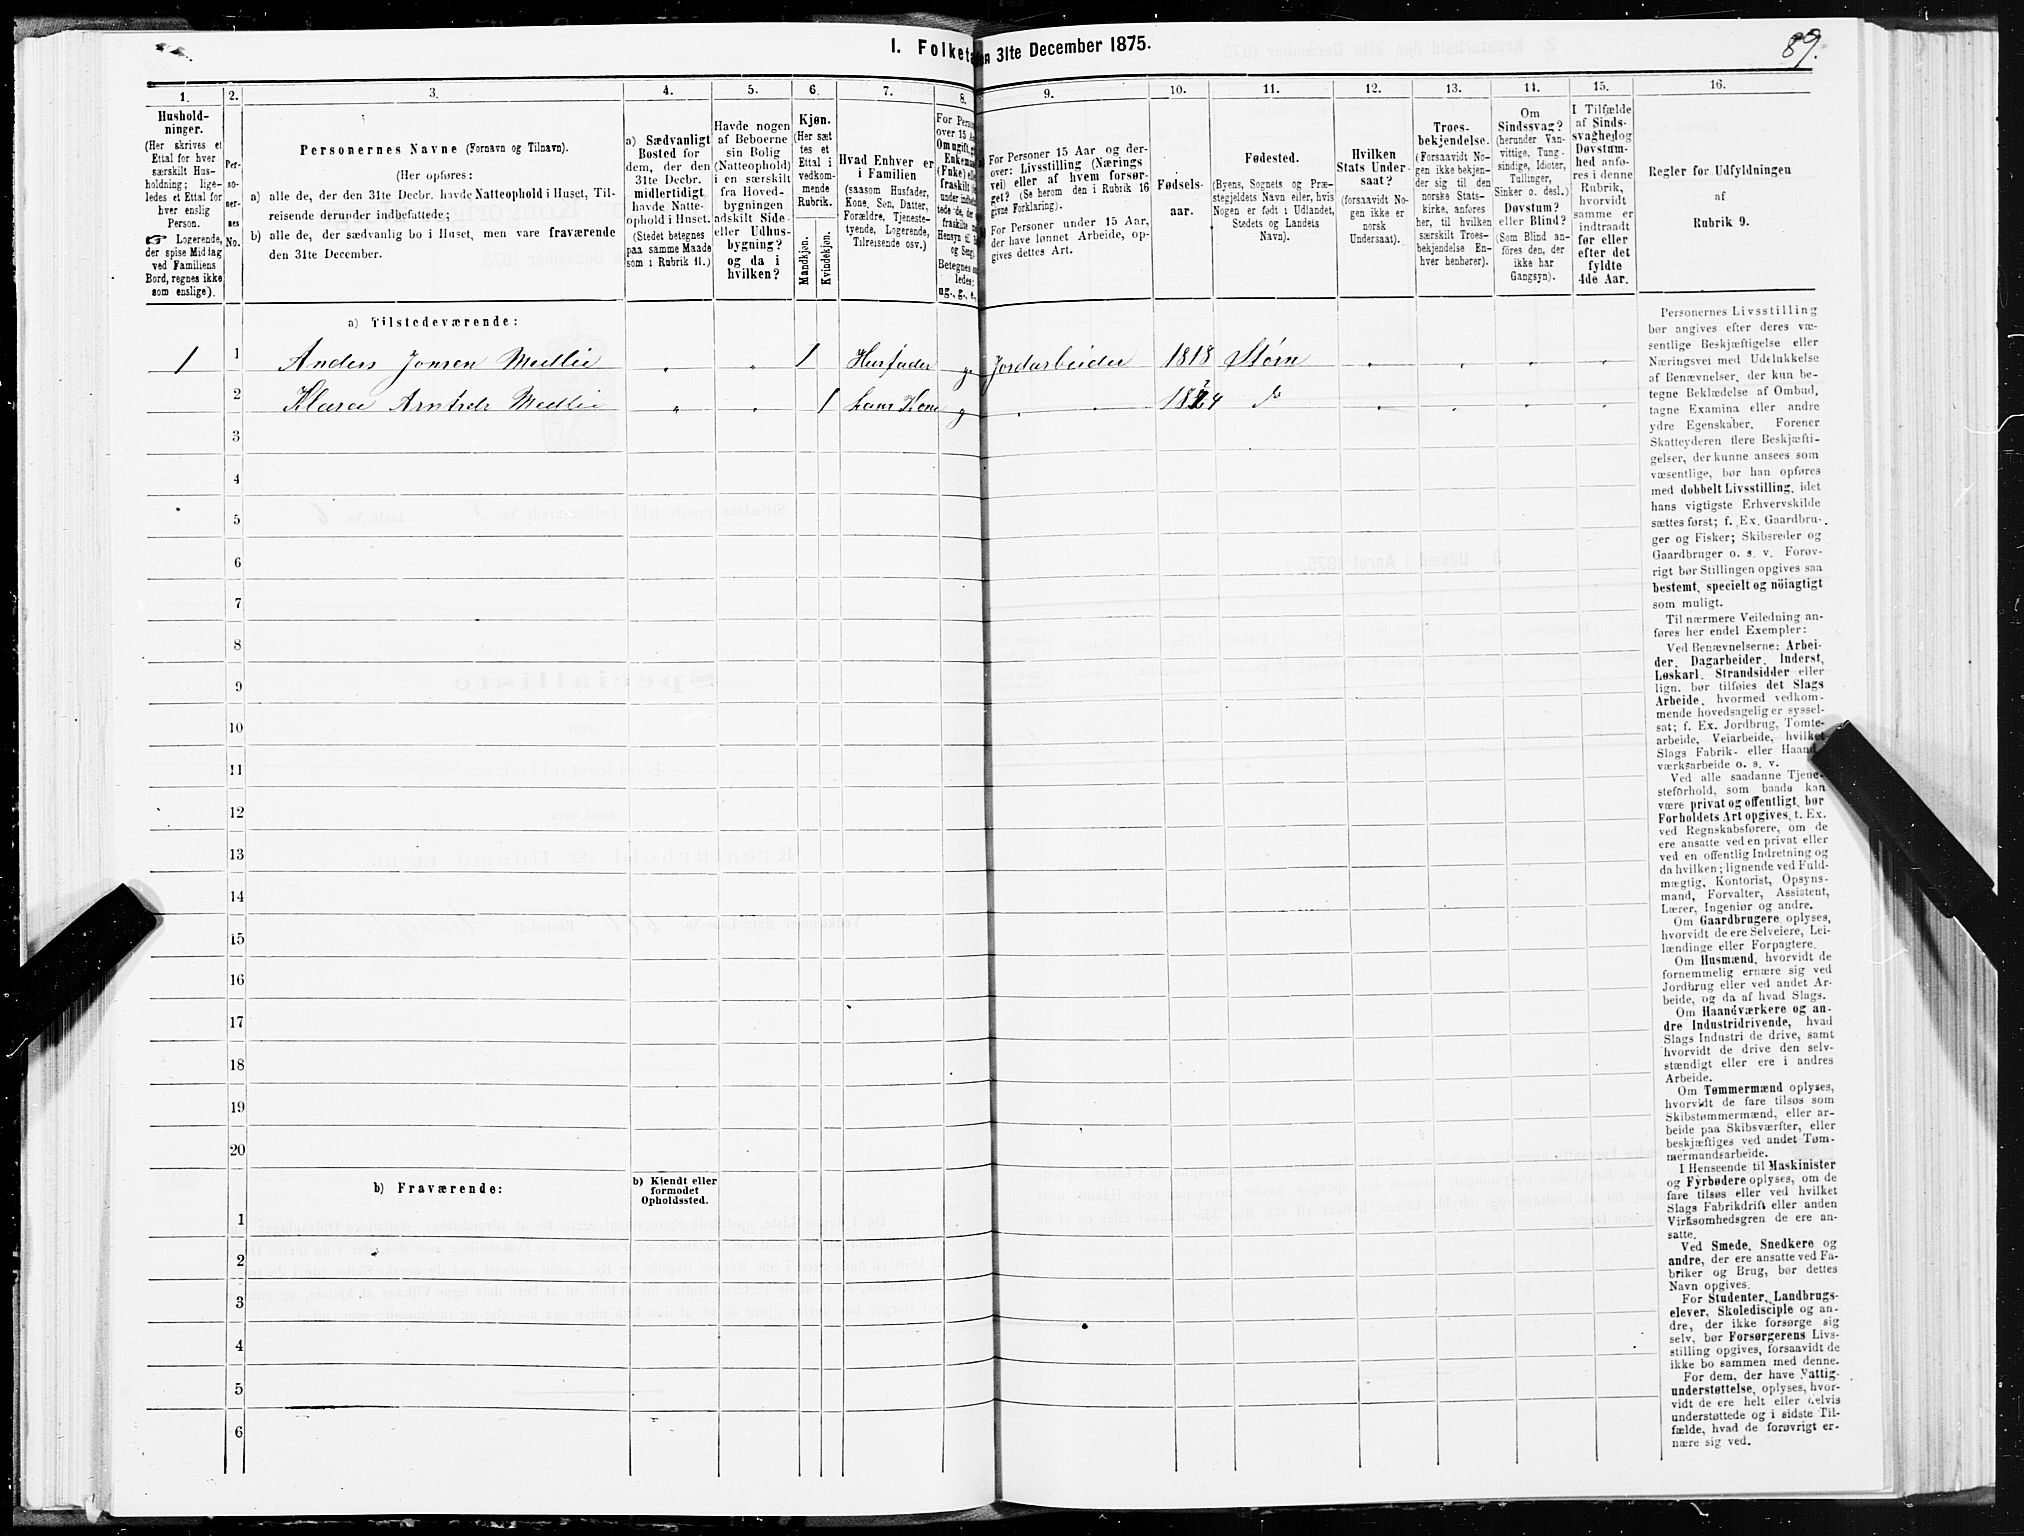 I. Folketa en 31te December 1875.
89.
1.
Hushold-
ninger.
(Her skrives et
Ettal for hver
særskilt Hus-
holdning; lige-
ledes et Ettal for
hver enslig
Person.
☞ Logerende,
der spise Middag
ved Familiens
Bord, regnes ikke
som enslige).
2.
Per-
so-
ner-
nes
No.
3.
Personernes Navne (Fornavn og Tilnavn).
(Her opføres:
a) alle de, der den 31te Decbr. havde Natteophold i Huset, Til-
reisende derunder indbefattede;
b) alle de, der sædvanlig bo i Huset, men vare fraværende
den 31te December.
4.
a) Sædvanligt
Bosted for
dem, der den
31te Decbr.
midlertidigt
havde Natte-
ophold i Huset.
(Stedet betegnes
paa samme Maade
som i Rubrik 11.)
5.
Havde nogen
af Beboerne
sin Bolig
(Natteophold)
i en særskilt
fra Hoved-
bygningen
adskilt Side-
eller Udhus-
bygning?
og da i
hvilken?
6.
Kjøn.
(Her sæt
tes et
Ettal i
vedkom-
mende
Rubrik.
Mandkjøn.
Kvindekjøn.
7.
Hvad Enhver er
i Familien
(saasom Husfader,
Kone, Søn, Datter,
Forældre, Tjeneste-
tyende, Logerende,
Tilreisende osv.)
8.
For Perso
over 15 Aa
Om ugift, g
Enkema
(Fnke) el
fraskilt
under indbe
tede de, de
fraskilte
Hensyn til
og Seng.
Betegnes sa
ledes:
ug., g., e.,
9.
For Personer 15 Aar og der-
over: Livsstilling (Nærings
vei) eller af hvem forsør-
get? (Se herom den i Rubrik 16
givne Forklaring).
For Personer under 15 Aar,
der have lønnet Arbeide, op-
gives dettes Art.
10.
Fødsels-
aar.
11.
Fødested.
(Byens, Sognets og Præ-
stegjeldets Navn eller, hvis
Nogen er født i Udlandet,
Stedets og Landets
Navn).
12.
Hvilken
Stats Under-
saat?
(forsaavidt No-
gen ikke er
norsk
Undersaat).
13.
Troes-
bekjendelse.
(Forsaavidt No-
gen ikke bekjen-
der sig til den
norske Stats-
kirke, anføres
her, til hvilken
særskilt Troes-
bekjendelse En-
hver henhører).
14.
Om
Sindssvag?
(herunder Van-
vittige, Tung-
sindige, Idioter,
Tullinger,
Sinker o. desl.)
Døvstum?
eller Blind?
(Som Blind an-
føres den, der
ikke har
Gangsyn).
15.
I Tilfælde
af Sinds-
svaghed og
Døvstum-
hed anfø-
res i denne
Rubrik,
hvorvidt
samme er
indtraadt
før eller
efter det
fyldte
4de Aar.
16.
Regler for Udfyldningen
af
Rubrik 9.
a) Tilstedeværende:
1 1 Anders Jonsen Medlie „ „ 1 Husfader g. Jordarbeider 1818 Størn „ „ „ „
2 Klara Arntsdr Medlie „ „ 1 hans Kone g „ „ 1824 do „ „ „ „
3
4
5
6
7
8
9
10
11
12
13
14
15
16
17
18
19
20
b) Fraværende:
b) Kjendt eller
formodet
Opholdssted.
1
2
3
4
5
6
Personernes Livsstilling
bør angives efter deres væ-
sentlige Beskjæftigelse eller
Næringsvei med Udelukkelse
af Benævnelser, der kun be-
tegne Beklædelse af Ombud,
tagne Examina eller andre
ydre Egenskaber. Forener
Skatteyderen flere Beskjæfti-
gelser, der kunne ansees som
væsentlige, bør han opføres
med dobbelt Livsstilling, idet
hans vigtigste Erhvervskilde
sættes først; f. Ex. Gaardbru-
ger og Fisker; Skibsreder og
Gaardbruger o. s. v. Forøv-
rigt bør Stillingen opgives saa
bestemt, specielt og nöiagtigt
som muligt.
Til nærmere Veiledning an-
føres her endel Exempler:
Ved Benævnelserne: Arbei-
der, Dagarbeider, Inderst,
Løskarl, Strandsidder eller
lign. bør tilføies det Slags
Arbeide, hvormed vedkom-
mende hovedsagelig er syssel-
sat; f. Ex. Jordbrug, Tomte-
arbeide, Veiarbeide, hvilket
Slags Fabrik- eller Haand-
værksarbeide o. s. v.
Ved alle saadanne Tjene-
steforhold, som baade kan
være privat og offentligt, bør
Forholdets Art opgives, t. Ex.
ved Regnskabsførere, om de
ere ansatte ved en privat eller
ved en offentlig Indretning og
da hvilken; lignende ved Fuld-
mægtig, Kontorist, Opsyns-
mand, Forvalter, Assistent,
Lærer, Ingeniør og andre.
Om Gaardbrugere oplyses,
hvorvidt de ere Selveiere, Lei-
lændinge eller Forpagtere.
Om Husmænd, hvorvidt de
fornemmelig ernære sig ved
Jordbrug eller ved andet Ar-
beide, og da af hvad Slags.
Om Haandværkere og an-
dre Industridrivende, hvad
Slags Industri de drive, samt
hvorvidt de drive den selv-
stændigt eller ere i andres
Arbeide.
Om Tømmermænd oplyses,
hvorvidt de fare tilsøs som
Skibstømmermænd, eller ar-
beide paa Skibsværfter, eller
beskjæftiges ved andet Tøm-
mermandsarbeide.
I Henseende til Maskinister
og Fyrbødere oplyses, om de
fare tilsøs eller ved hvilket
Slags Fabrikdrift eller anden
Virksomhedsgren de ere an-
satte.
Ved Smede, Snedkere og
andre, der ere ansatte ved Fa-
briker og Brug, bør dettes
Navn opgives.
For Studenter, Landbrugs-
elever, Skoledisciple og an-
dre, der ikke forsørge sig
selv, bør Forsørgerens Livs-
stilling opgives, forsaavidt de
ikke bo sammen med denne.
For dem, der have Fattig-
understøttelse, oplyses, hvor-
vidt de ere helt eller delvis
understøttede og i sidste Til-
fælde, hvad de forøvrigt er-
nære sig ved.